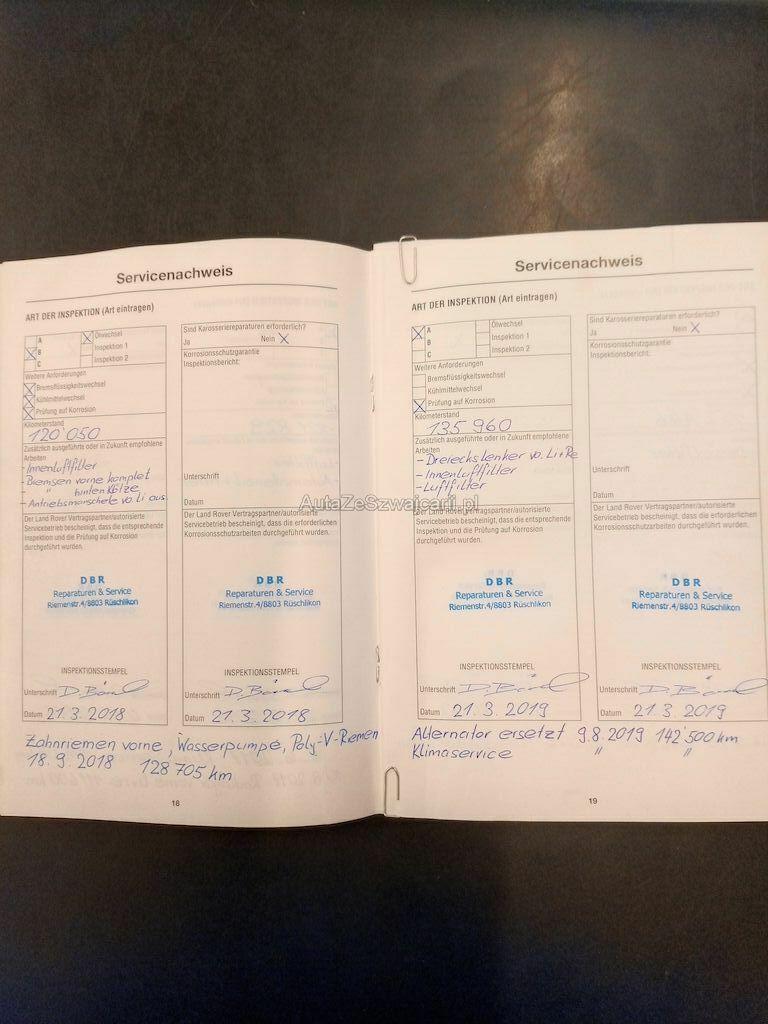 Servicenachweis
ART DER INSPEKTION (Art eintragen)
A
B
C
Ölwechsel
Inspektion 1
Inspektion 2
Weitere Anforderungen
Bremsflüssigkeitswechsel
Kühlmittelwechsel
Prüfung auf Korrosion
Kilometerstand
120'050
Zusätzlich ausgeführte oder in Zukunft empfohlene
Arbeiten
- Innenluftfilter
- Bremsen vorne komplet
- " hinten Klötze
- Antriebsmanschete vo. Li aus.
Der Land Rover Vertragspartner/autorisierte
Servicebetrieb bescheinigt, dass die entsprechende
Inspektion und die Prüfung auf Korrosion
durchgeführt wurden.
DBR
Reparaturen & Service
Riemenstr.4/8803 Rüschlikon
INSPEKTIONSSTEMPEL
Unterschrift
Datum 21.3.2018
Sind Karosseriereparaturen erforderlich?
Ja Nein X
Korrosionsschutzgarantie
Inspektionsbericht:
Unterschrift
Datum
Der Land Rover Vertragspartner/autorisierte
Servicebetrieb bescheinigt, dass die erforderlichen
Korrosionsschutzarbeiten durchgeführt wurden.
DBR
Reparaturen & Service
Riemenstr.4/8803 Rüschlikon
INSPEKTIONSSTEMPEL
Unterschrift
Datum 21.3.2018
Zahnriemen vorne, Wasserpumpe, Poly-V-Riemen
18.9.2018 128705 km
18
Servicenachweis
ART DER INSPEKTION (Art eintragen)
A
B
C
Ölwechsel
Inspektion 1
Inspektion 2
Weitere Anforderungen
Bremsflüssigkeitswechsel
Kühlmittelwechsel
Prüfung auf Korrosion
Kilometerstand
135'960
Zusätzlich ausgeführte oder in Zukunft empfohlene
Arbeiten
- Dreieckslenker vo. Li+Re
- Innenluftfilter
- Luftfilter
Der Land Rover Vertragspartner/autorisierte
Servicebetrieb bescheinigt, dass die entsprechende
Inspektion und die Prüfung auf Korrosion
durchgeführt wurden.
DBR
Reparaturen & Service
Riemenstr.4/8803 Rüschlikon
INSPEKTIONSSTEMPEL
Unterschrift
Datum 21.3.2019
Sind Karosseriereparaturen erforderlich?
Ja Nein X
Korrosionsschutzgarantie
Inspektionsbericht:
Unterschrift
Datum
Der Land Rover Vertragspartner/autorisierte
Servicebetrieb bescheinigt, dass die erforderlichen
Korrosionsschutzarbeiten durchgeführt wurden.
DBR
Reparaturen & Service
Riemenstr.4/8803 Rüschlikon
INSPEKTIONSSTEMPEL
Unterschrift
Datum 21.3.2019
Alternator ersetzt 9.8.2019 142'500 km
Klimaservice " "
19
AutaZeSzwajcarii.pl